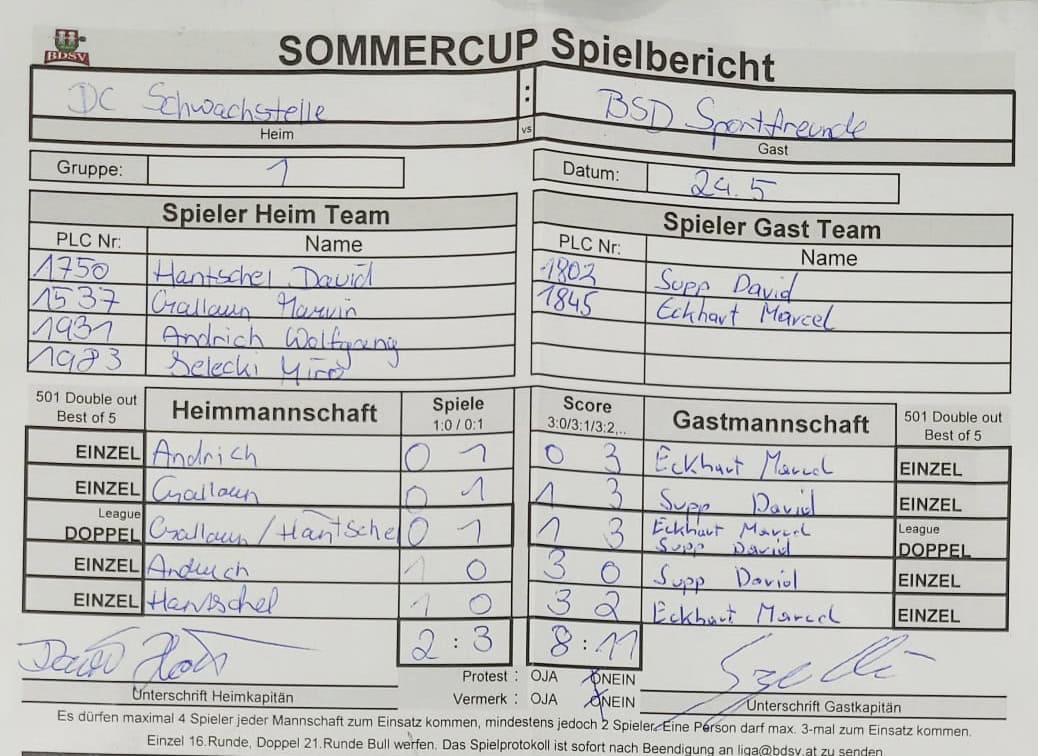 BDSV
SOMMERCUP Spielbericht
DC Schwachstelle : BSD Sportfreunde
Heim vs Gast
Gruppe: 1 Datum: 24.5
Spieler Heim Team Spieler Gast Team
PLC Nr: Name PLC Nr: Name
1750 Hantschel David 1802 Supp David
1537 Gallaun Marvin 1845 Eckhart Marcel
1931 Andrich Wolfgang
1983 Selecki Miro
501 Double out Best of 5 Heimmannschaft Spiele 1:0 / 0:1 Score 3:0/3:1/3:2,.. Gastmannschaft 501 Double out Best of 5
EINZEL Andrich 0 1 0 3 Eckhart Marcel EINZEL
EINZEL Gallaun 0 1 1 3 Supp David EINZEL
League DOPPEL Gallaun / Hantschel 0 1 1 3 Eckhart Marcel Supp David League DOPPEL
EINZEL Andrich 1 0 3 0 Supp David EINZEL
EINZEL Hantschel 1 0 3 2 Eckhart Marcel EINZEL
2 : 3 8 : 11
Protest : OJA ONEIN
Unterschrift Heimkapitän Vermerk : OJA ONEIN Unterschrift Gastkapitän
Es dürfen maximal 4 Spieler jeder Mannschaft zum Einsatz kommen, mindestens jedoch 2 Spieler. Eine Person darf max. 3-mal zum Einsatz kommen.
Einzel 16.Runde, Doppel 21.Runde Bull werfen. Das Spielprotokoll ist sofort nach Beendigung an liga@bdsv.at zu senden